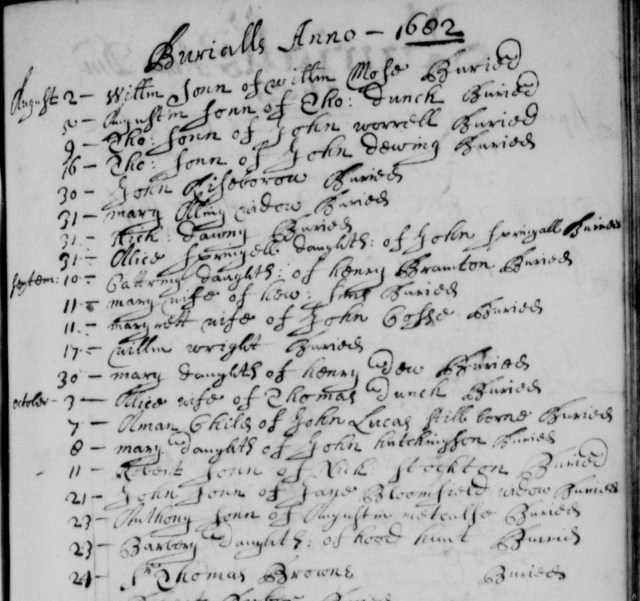 Burialls Anno - 1682
August 2 - Willm sonn of willm Mose Buried
5 - Augustin sonn of Tho: Dunch Buried
9 - Tho: sonn of John worrell Buried
16 - Tho: sonn of John dewing Buried
30 - John Riseborow Buried
31 - mary widow Buried
31 - Rich: dawny Buried
31 - Allice Springell daughtr: of John Springall Buried
Septem: 10 - Cattring daughtr: of henry Bramton Buried
11 - mary wife of hew: Buried
11 - margrett wife of John Gosse Buried
17 - willm wright Buried
30 - mary daughtr of henry dew Buried
october - 3 - Allice wife of Thomas dunch Buried
7 - Aman Child of John Lucas still borne Buried
8 - mary daughtr of John hutchingson Buried
11 - Robert sonn of Nich: Stockton Buried
21 - John sonn of Jane Bloomfield widow Buried
23 - Anthony sonn of Augustin metcalfe Buried
23 - Barbery daughtr: of hunt Buried
24 - Sr Thomas Browne Buried
Buried